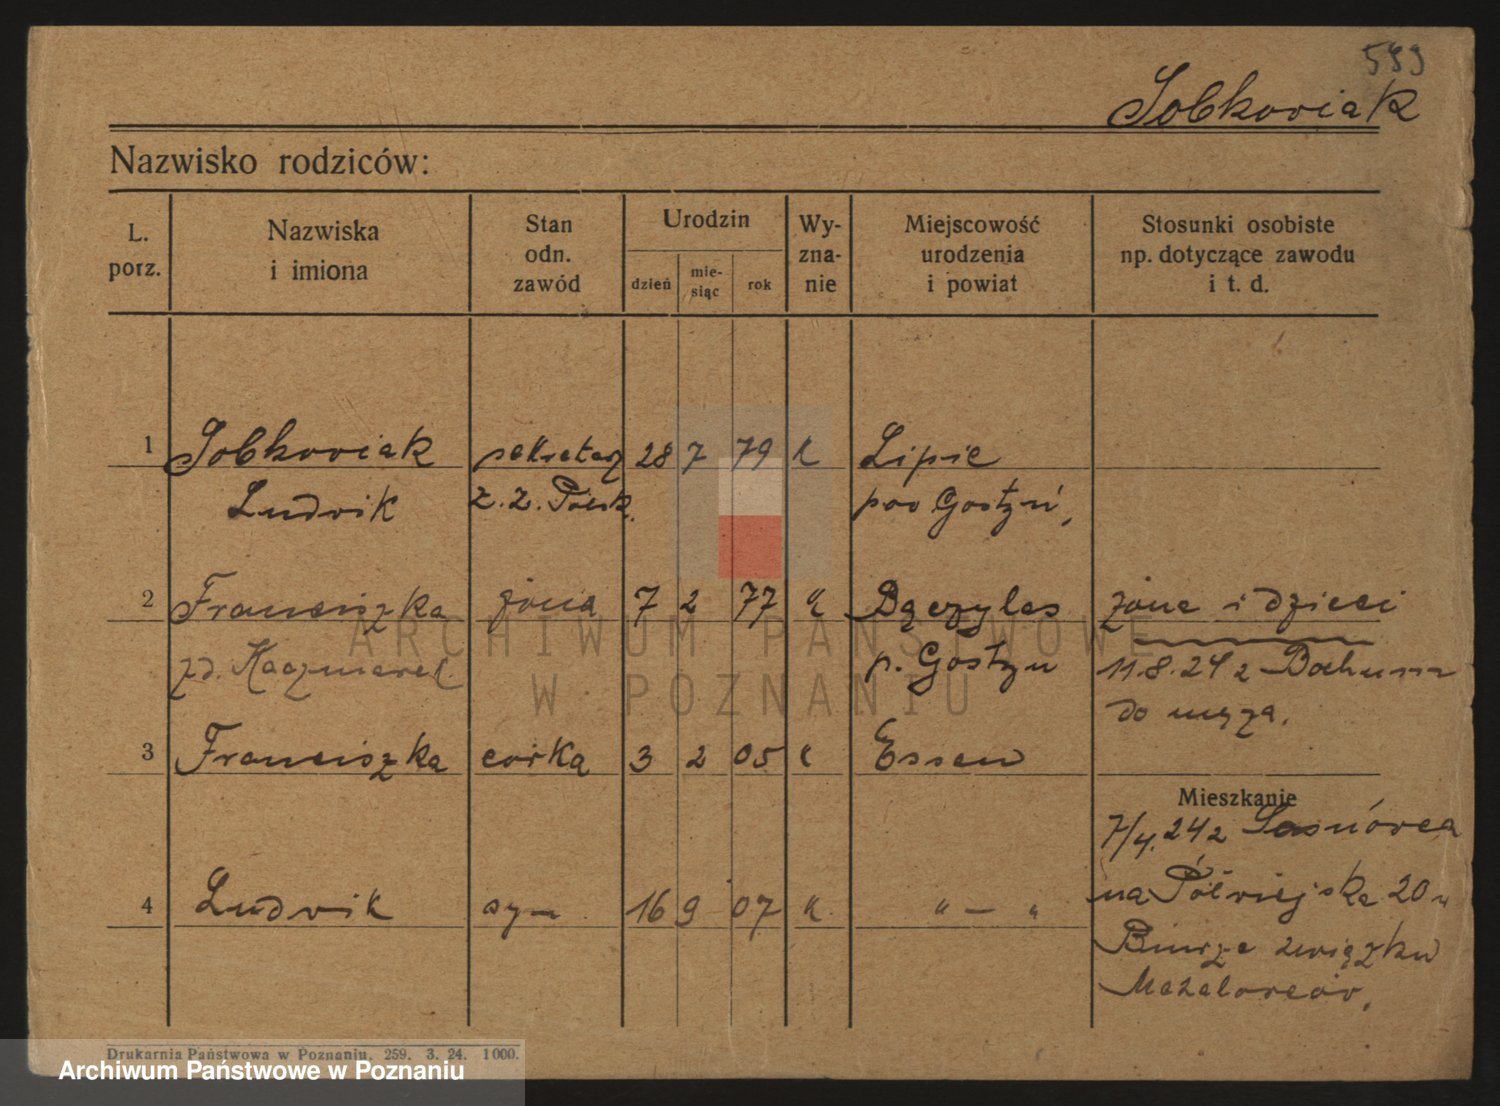 599
Sobkowiak
Nazwisko rodziców:
L. porz.
Nazwiska i imiona
Stan odn. zawód
Urodzin
dzień
mie-siąc
rok
Wy-zna-nie
Miejscowość urodzenia i powiat
Stosunki osobiste np. dotyczące zawodu i t. d.
1 Sobkowiak sekretarz 28 7 79 k Lipie
Ludwik Z. Z. Polsk. pow Gostyń,
2 Franciszka żona 7 2 77 k żona i dzieci
zd. Kaczmarek p. Gostyn 11.8.24 z Bochum
do męża.
3 Franciszka córka 3 2 05 k Essen
Mieszkanie
7/4.24 z
4 Ludwik syn 16 9 07 k " — " na Półwiejska 20 w
Biurze związku
Drukarnia Państwowa w Poznaniu. 259. 3. 24. 1000.
ARCHIWUM PAŃSTWOWE
W POZNANIU
Archiwum Państwowe w Poznaniu